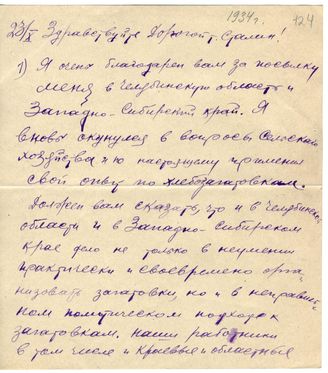 1934г.
124
23/X Здравствуйте Дорогой т. Сталин!
1) Я очень благодарен вам за посылку
меня в Челябинскую область и
Западно-Сибирский край. Я
вновь окунулся в вопросы Сельского
хозяйства и по настоящему применил
свой опыт по хлебозаготовкам.
Должен вам сказать, что и в Челябинской
области и в Западно-Сибирском
крае дело не только в неумении
практически и своевремено орга-
низовать заготовки, но и в неправиль-
ном политическом подходе к
заготовкам. Наши работники
в том числе и Краевые и областные